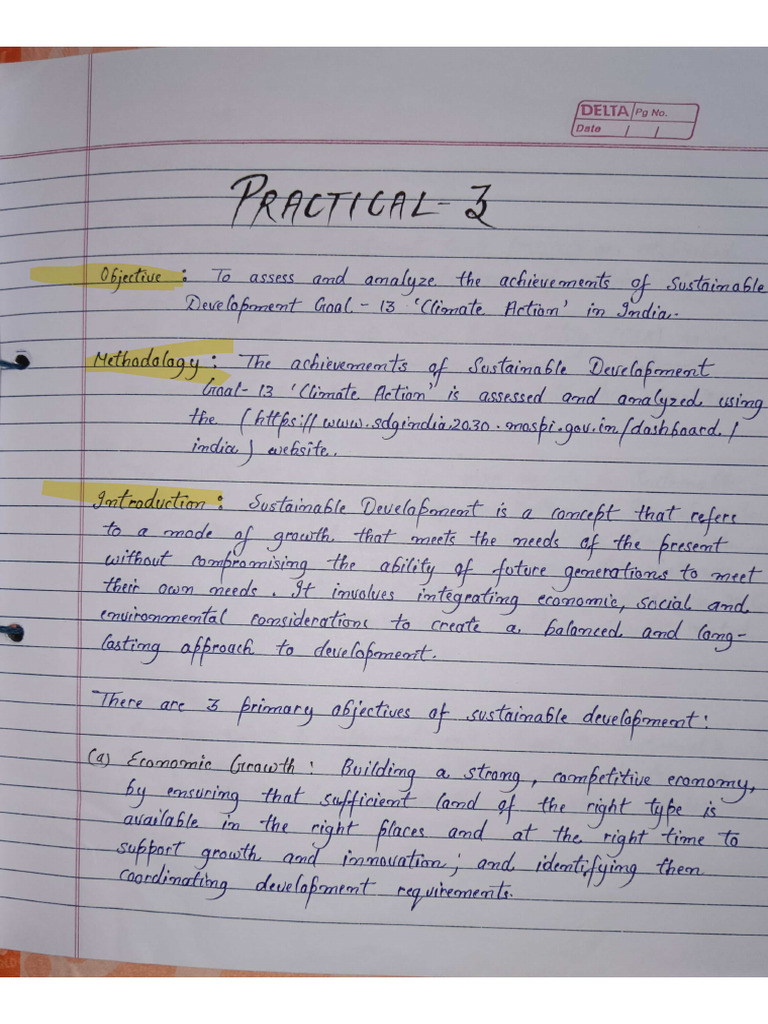 DELTA Pg No.
Date / /
PRACTICAL - 3
Objective : To assess and analyze the achievements of Sustainable
Development Goal - 13 'Climate Action' in India.
Methodology : The achievements of Sustainable Development
Goal - 13 'Climate Action' is assessed and analyzed using
the (https://www.sdgindia2030.mospi.gov.in/dashboard/
india) website.
Introduction : Sustainable Development is a concept that refers
to a mode of growth that meets the needs of the present
without compromising the ability of future generations to meet
their own needs. It involves integrating economic, social and
environmental considerations to create a balanced and long-
lasting approach to development.
There are 3 primary objectives of sustainable development :
(a) Economic Growth : Building a strong, competitive economy,
by ensuring that sufficient land of the right type is
available in the right places and at the right time to
support growth and innovation; and identifying them
coordinating development requirements.